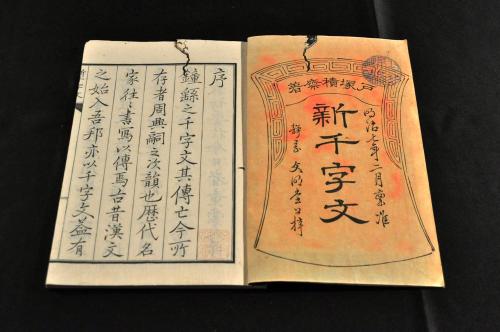 戸塚積齋著
明治七年二月稟准
新千字文
文明堂上梓
序
鐘繇之千字文其傳亡今所
存者周興嗣之次韻也歴代名
家往々書寫以傳焉古昔漢文
之始入吾邦亦以千字文蓋有